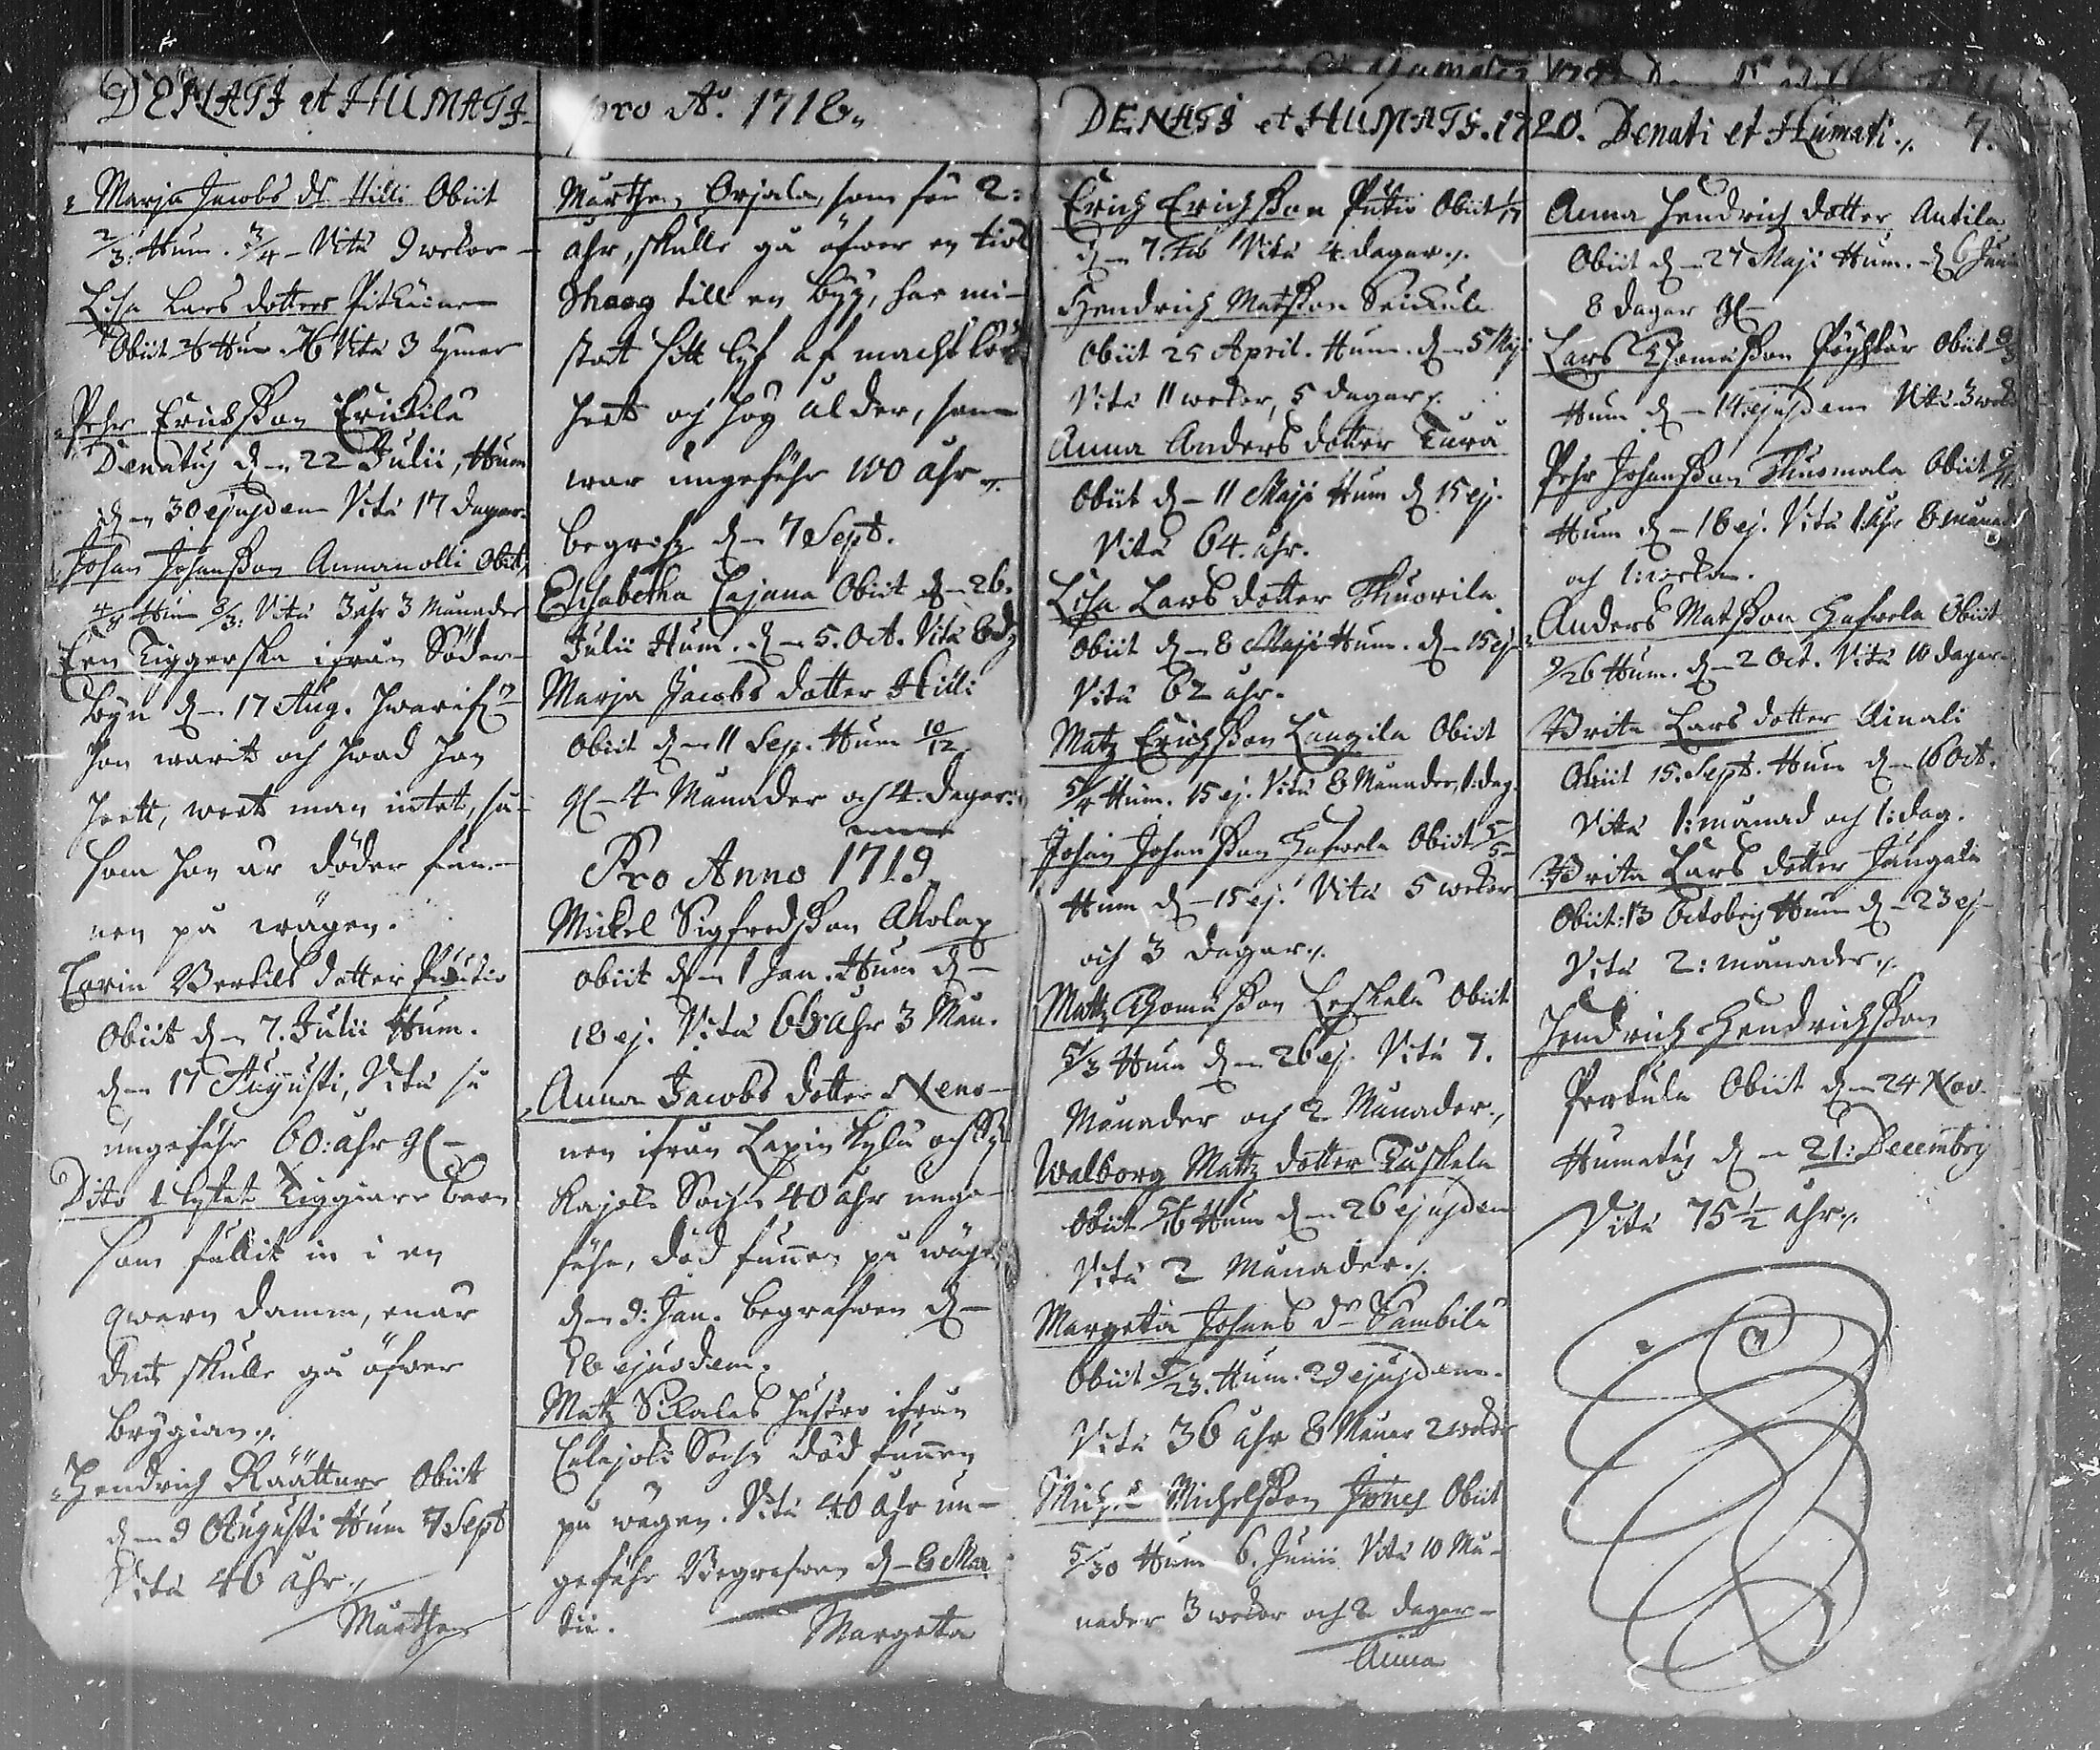 DENATI et HUMATI
Marja Jacobs dr Hilli Obiit
2/3. Hum. 3/4 - Vita 9 wekor
Lisa Lars dotter
Obiit Hum Vita 3 tymar
Pehr Erichsson Erickilä
Denatus d. 22 Julii, Hum
d. 30 ejusdem Vita 17 dagar
Johan Johansson Annanolli Obiit
Hum Vita 3 ahr 3 Månader
Een Tiggerska ifrån Söder-
byn d. 17 Aug. hwarifrn
hon warit och hwad hon
heett, weet man intet, så-
som hon är döder fun-
nen på wägen.
Carin Bertils dotter
Obiit d. 7. Julii Hum.
d. 17 Augusti, Vita
ungefähr 60: ahr gl-
Dito 1 lytet Tiggiare barn
som fallit in i en
qwarn damm, enär
det skulle gå öfwer
bryggian.
Hendrich Räättare Obiit
d. 9 Augusti Hum 7 Sept
Vita 46 ahr.
Marthen
pro Ao. 1718.
Marthen Orjala, som för 2:
åhr, skulle gå öfwer en
Skoog till en byy, har mi-
stat sitt lyf af machtlös-
heet och hög ålder, som
war ungefähr 100 åhr.
begrofs d. 7 Sept.
Elisabetha Cajana Obiit d. 26.
Julii Hum. d. 5. Oct. Vita
Marja Jacobs dotter Hilli
Obiit d. 11 Sep. Hum 10/12
gl- 4 Månader och 4. dagar.
Pro Anno 1719
Mickel Sigfredsson
obiit d. 1 Jan. Hum d.
18 ej. Vita ahr 3 Mån.
Anna Jacobs dotter Neno-
nen ifrån Lapin kylä och
kajoki Sochn 40 ahr unge-
fähr, död funnen på wäge
d. 9: Jan. begrafwen d.
ejusdem.
Matz Sikalas hustro ifrån
Calajoki Sochn död funnen
på wägen. Vita 40 Ahr un-
gefähr Begrafwen d. 6 Mar
tii.
Margeta
DENATI et HUMATI. 1720. Denati et Humati. 7.
Erich Erichsson Putio Obiit 1/17
d. 7. Feb Vita 4. dagar.
Hendrich Matsson
Obiit 25 April. Hum. d. 5 Maj
Vita 11 wekor, 5 dagar.
Anna Anders dotter
Obiit d. 11 Maji Hum d. 15 ej.
Vita 64. ahr.
Lisa Lars dotter Thuorila
Obiit d. 8 Maji Hum. d. 15 ej
Vita 62 ahr.
Matz Erichsson Laugila Obiit
5/4 Hum. 15 ej. Vita 8 Månader, 1. dag.
Johan Johansson Hafwela Obiit 5/5
Hum d. 15 ej. Vita 5 wekor
och 3 dagar.
Mattz Thomasson Leskelä Obiit
5/3 Hum d. 26 ej. Vita 7.
Månader och 2 Månader.
Walborg Mattz dotter
Obiit 5/16 Hum d. 26 ejusdem
Vita 2 Månader.
Margeta Johans dr
Obiit 5/23. Hum. 29 ejusdem.
Vita 36 ahr 8 Månar 2 wekor
Michel Michelsson Obiit
5/30 Hum 6. Junii Vita 10 Må-
nader 3 wekor och 2 dagar
Anna
Anna Hendrich dotter Antila
Obiit d. 27 Maji Hum. d. 6 Junii
8 dagar gl-
Lars Thomasson Obiit
Hum d. 14. ejusdem Vita 3 wek
Pehr Johansson Thuomala Obiit
Hum d. 16 ej. Vita 1 ahr 8 månad
och 1: wekan.
Anders Matsson Hafwela Obiit
9/26 Hum. d. 2 Oct. Vita 10 dagar
Brita Lars dotter Ainali
Obiit 15. Sept. Hum d. 16 Oct.
Vita 1: månad och 1: dag.
Brita Lars dotter
Obiit: 13 Octobris Hum d. 23 ej
Vita 2: månader.
Hendrich Hendrichsson
Obiit d. 24 Nov.
Humatus d. 21: Decembris
Vita 75 1/2 ahr.